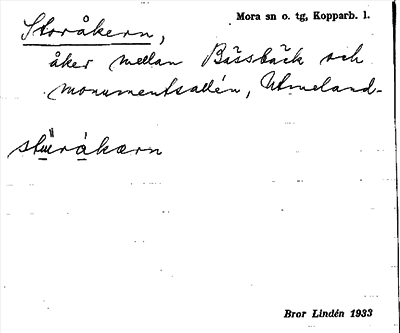 Mora sn o. tg, Kopparb. l.
Storåkern,
åker mellan Bässbäck och
monumentsallén, Utmeland-
Bror Lindén 1933